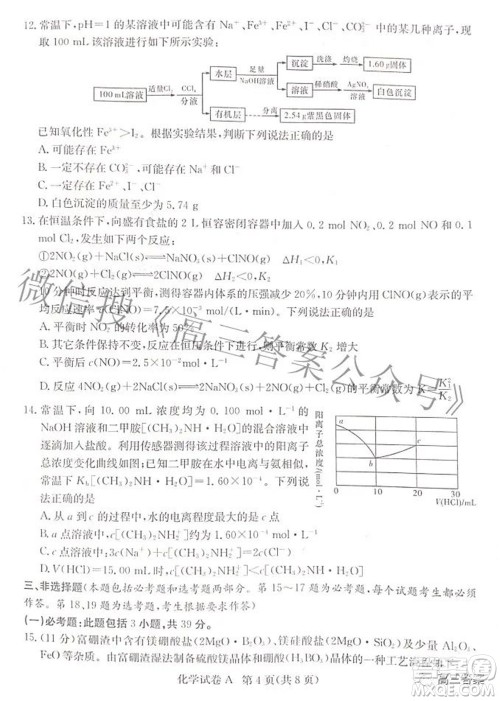 12. 常温下,pH=1的某溶液中可能含有Na⁺、Fe³⁺、Fe²⁺、I⁻、Cl⁻、CO₃²⁻中的某几种离子,现
取100 mL该溶液进行如下所示实验:
100 mL溶液 适量Cl₂ CCl₄ 分液
水层 足量 NaOH溶液
沉淀 洗涤 灼烧 1.60 g固体
溶液 稀硝酸 AgNO₃ 溶液 白色沉淀
有机层 分离 2.54 g紫黑色固体
已知氧化性Fe³⁺>I₂。根据实验结果,判断下列说法正确的是
A. 可能存在Fe³⁺
B. 一定不存在CO₃²⁻,可能存在Na⁺和Cl⁻
C. 一定存在Fe²⁺、I⁻、Cl⁻
D. 白色沉淀的质量至少为5.74 g
13. 在恒温条件下,向盛有食盐的2 L恒容密闭容器中加入0.2 mol NO₂、0.2 mol NO和0.1
mol Cl₂,发生如下两个反应:
①2NO₂(g)+NaCl(s)⇌NaNO₃(s)+ClNO(g) ΔH₁<0
②2NO(g)+Cl₂(g)⇌2ClNO(g) ΔH₂<0
10分钟时反应达到平衡,测得容器内体系的压强减少20%,10分钟内用ClNO(g)表示的平均
A. 平衡时NO₂的转化率为50%
B. 其它条件保持不变,反应在恒压条件下进行,平衡常数K₂增大
C. 平衡后c(NO)=2.5×10⁻² mol·L⁻¹
D. 反应4NO₂(g)+2NaCl(s)⇌2NaNO₃(s)+2NO(g)+Cl₂(g)的平衡常数为
14. 常温下,向10.00 mL浓度均为0.100 mol·L⁻¹的
NaOH溶液和二甲胺[(CH₃)₂NH·H₂O]的混合溶液中
逐滴加入盐酸。利用传感器测得该过程溶液中的阳离子
总浓度变化曲线如图;已知二甲胺在水中电离与氨相似,
常温下K_b[(CH₃)₂NH·H₂O]=1.60×10⁻⁴。下列说
法正确的是
阳离子总浓度/(mol·L⁻¹)
a
b
c
0 10 20 30
V(HCl)/mL
A. 从a到c的过程中,水的电离程度最大的是c点
B. b点溶液中,c[(CH₃)₂NH₂⁺]约为1.60×10⁻⁴ mol·L⁻¹
C. c点溶液中:3c(Na⁺)+c[(CH₃)₂NH₂⁺]=2c(Cl⁻)
D. V(HCl)=15.00 mL时,c[(CH₃)₂NH₂⁺]<c[(CH₃)₂NH·H₂O]
三、非选择题(本题包括必考题和选考题两部分。第15~17题为必考题,每个试题考生都必须
作答。第18、19题为选考题,考生根据要求作答)
(一)必考题:此题包括3小题,共39分。
15. (11分)富硼渣中含有镁硼酸盐(2MgO·B₂O₃)、镁硅酸盐(2MgO·SiO₂)及少量Al₂O₃、
FeO等杂质。由富硼渣湿法制备硫酸镁晶体和硼酸(H₃BO₃)晶体的一种工艺流程如下:
化学试卷A 第4页(共8页)
微信搜《高三答案公众号》
高三答案